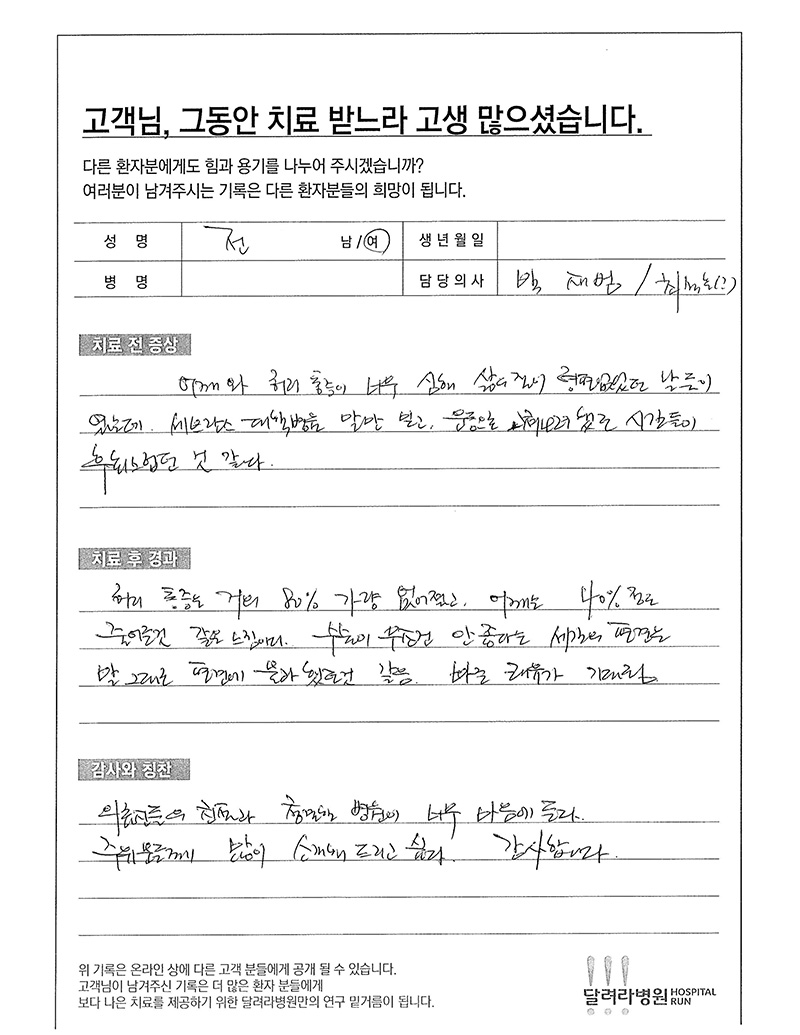 고객님, 그동안 치료 받느라 고생 많으셨습니다.
다른 환자분에게도 힘과 용기를 나누어 주시겠습니까?
여러분이 남겨주시는 기록은 다른 환자분들의 희망이 됩니다.
성 명 전 남/여 생년월일
병 명 담당의사 박 재범 / 최 (?)
치료 전 증상
어깨와 허리 통증이 너무 심해 삶의 질이 형편없었던 날들이
있었는데. 세브란스 대학병원을 말만 믿고, 운동으로 했던 시간들이
후회스럽던 것 같다.
치료 후 경과
허리 통증는 거의 80% 가량 없어졌고, 어깨는 40% 정도
줄어든것 같은 느낌이다. 수술이 무조건 안 좋다는 세간의 편견는
말 그대로 편견에 불과 했던것 같음. 빠른 쾌유가 기대됨.
감사와 칭찬
의료진들의 친절과 청결한 병원이 너무 마음에 든다.
주위분들께 많이 소개해 드리고 싶다. 감사합니다.
위 기록은 온라인 상에 다른 고객 분들에게 공개 될 수 있습니다.
고객님이 남겨주신 기록은 더 많은 환자 분들에게
보다 나은 치료를 제공하기 위한 달려라병원만의 연구 밑거름이 됩니다.
달려라병원 HOSPITAL RUN